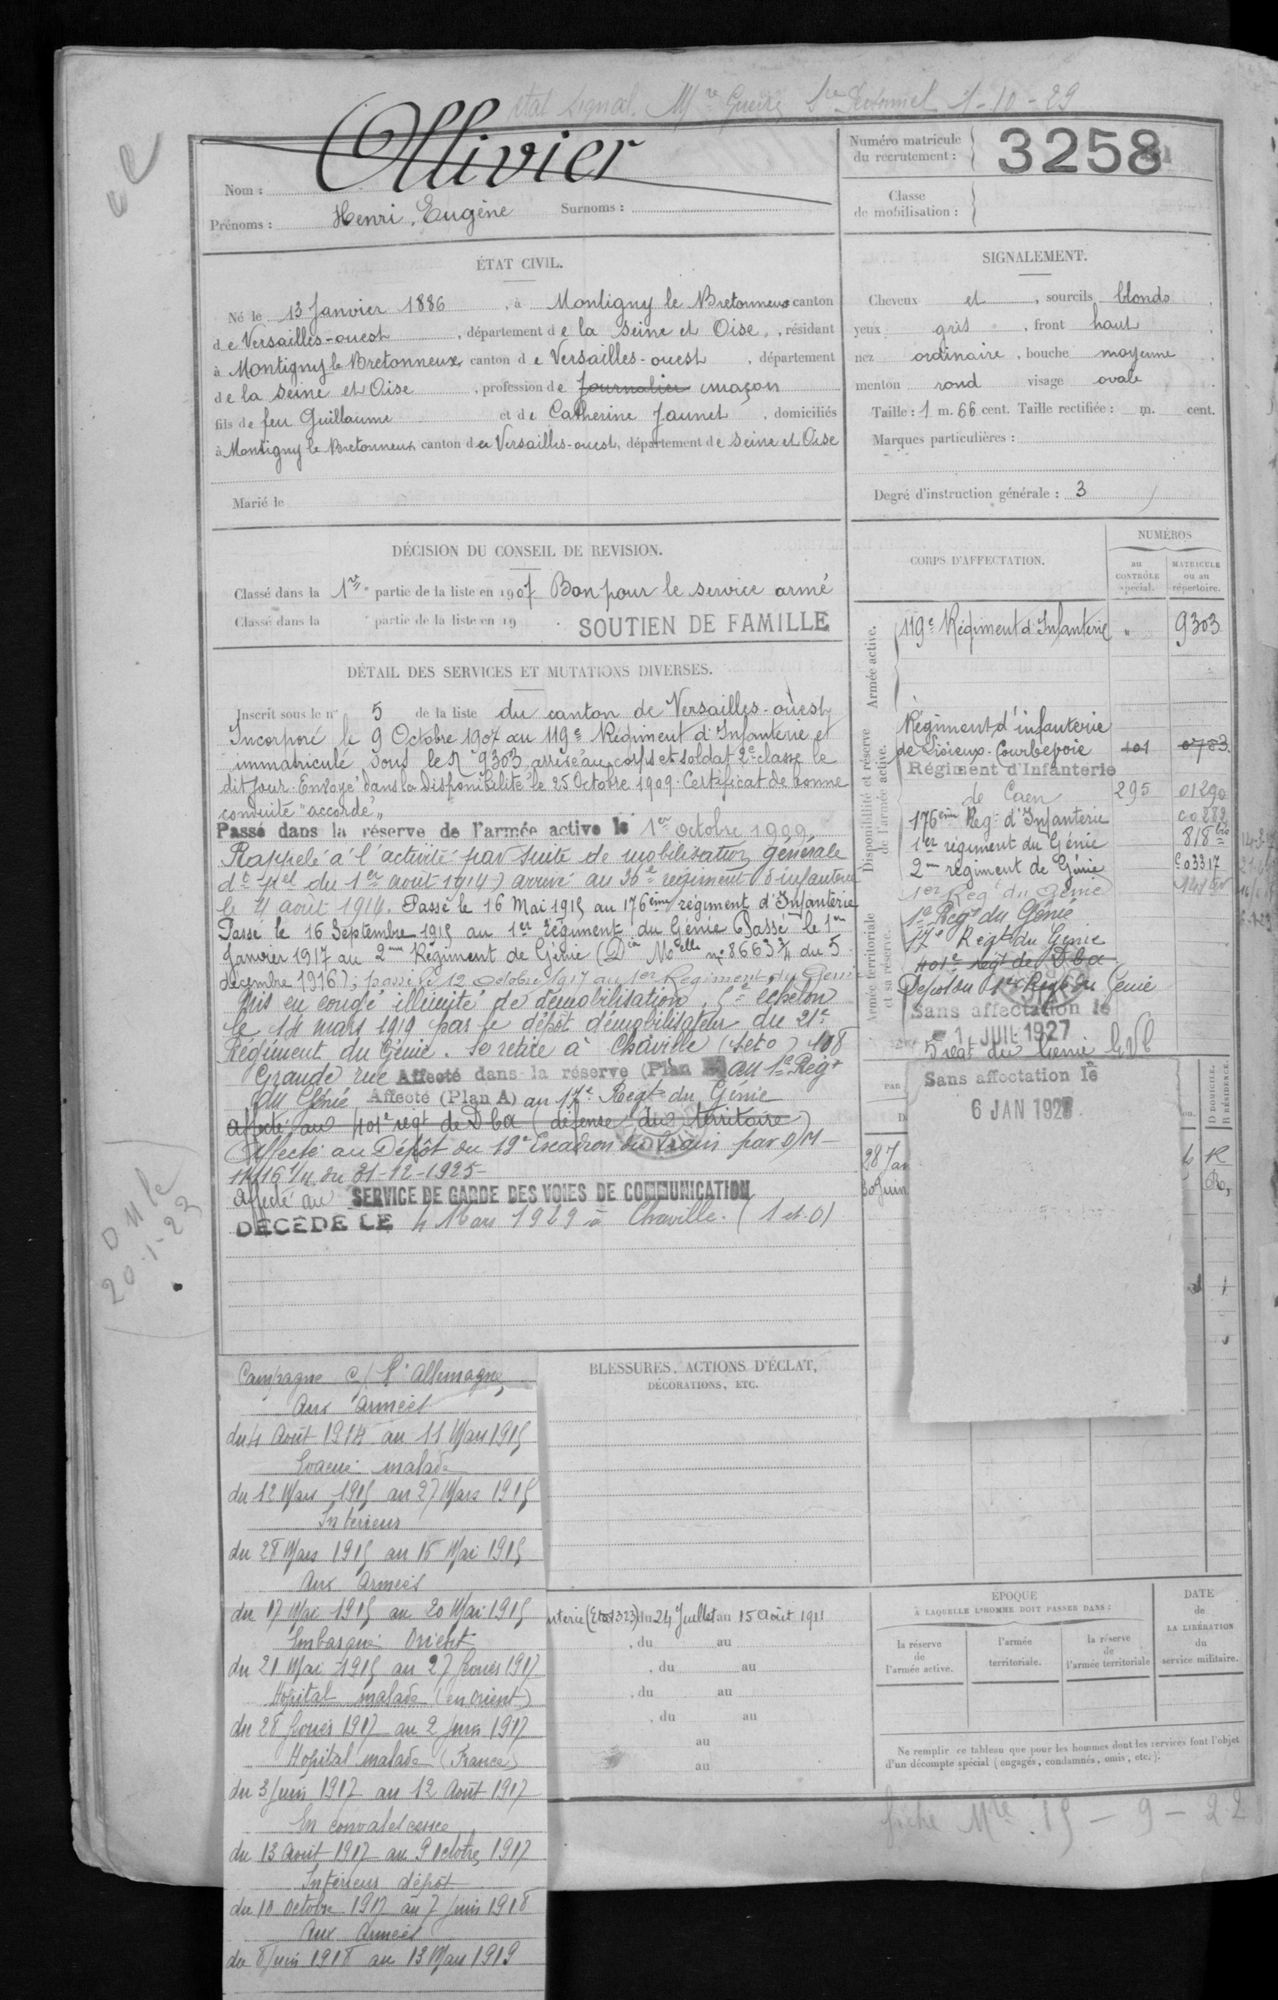 Etat signal. Mre Guerre Sce Personnel 1-10-29
Nom : Ollivier
Prénoms : Henri, Eugène Surnoms :
Numéro matricule du recrutement : 3258
Classe de mobilisation :
ÉTAT CIVIL.
Né le 13 Janvier 1886, à Montigny le Bretonneux canton
de Versailles-ouest, département de la Seine et Oise, résidant
à Montigny le Bretonneux canton de Versailles-ouest, département
de la Seine et Oise, profession de Journalier maçon
fils de feu Guillaume et de Catherine Jaunet, domiciliés
à Montigny le Bretonneux, canton de Versailles-ouest, département de Seine et Oise
Marié le
SIGNALEMENT.
Cheveux et, sourcils blonds
yeux gris, front haut
nez ordinaire, bouche moyenne
menton rond visage ovale
Taille : 1 m. 66 cent. Taille rectifiée : m. cent.
Marques particulières :
Degré d'instruction générale : 3
DÉCISION DU CONSEIL DE REVISION.
Classé dans la 1re partie de la liste en 1907 Bon pour le service armé
Classé dans la partie de la liste en 19
SOUTIEN DE FAMILLE
DÉTAIL DES SERVICES ET MUTATIONS DIVERSES.
Inscrit sous le n° 5 de la liste du canton de Versailles-ouest
Incorporé le 9 Octobre 1907 au 119e Régiment d'Infanterie et
immatriculé sous le N° 9303, arrivé au corps et soldat 2e classe le
dit jour. Envoyé dans la disponibilité le 25 Octobre 1909. Certificat de bonne
conduite "accordé"
Passé dans la réserve de l'armée active le 1er octobre 1909
Rappelé à l'activité par suite de mobilisation générale
(dt pel du 1er août 1914) arrivé au 36e régiment d'infanterie
le 4 août 1914. Passé le 16 Mai 1915 au 176ème régiment d'Infanterie
Passé le 16 Septembre 1915 au 1er régiment du Génie Passé le 1er
Janvier 1917 au 2me Régiment de Génie (Don Melle n° 8663 3/4 du 5
décembre 1916), passé le 12 octobre 1917 au 1er Régiment du Génie
Mis en congé illimité de démobilisation, 5e échelon
le 14 mars 1919 par le dépôt démobilisateur du 21e
Régiment du Génie. Se retire à Chaville (Seto) 108
Grande rue Affecté dans la réserve (Plan au 1er Régt
du Génie Affecté (Plan A) au 17e Régt du Génie
Affecté au 401e régt de Dba (défense du territoire)
Affecté au Dépôt du 19e Escadron du Train par D/M
14116 1/11 du 31-12-1925
Affecté au SERVICE DE GARDE DES VOIES DE COMMUNICATION
DÉCÉDÉ LE 4 Mars 1929 à Chaville (S et O)
D M le
20-1-23
CORPS D'AFFECTATION.
NUMÉROS
au CONTRÔLE spécial.
MATRICULE ou au répertoire.
Armée active.
119e Régiment d'Infanterie " 9303
Disponibilité et réserve de l'armée active.
Régiment d'infanterie
de Lisieux-Courbevoie 101 0783
Régiment d'Infanterie
de Caen 295 01290
176ème Reg. d'Infanterie 00882
1er régiment du Génie 818 bis
2me régiment de Génie 003317
1er Régt du Génie
Armée territoriale et sa réserve.
1er Régt du Génie
17e Régt du Génie
401e régt de Dba
Dépôt du 1er Régt du Génie
Sans affectation le
1 JUIL 1927
5 régt du Génie GVC
Sans affectation le
6 JAN 1928
28 Jan
30 Juin
D DOMICILE.
R RÉSIDENCE.
R
Campagne c/ l'Allemagne
Aux Armées
du 4 Août 1914 au 11 Mars 1915
Evacué malade
du 12 Mars 1915 au 27 Mars 1915
Intérieur
du 28 Mars 1915 au 16 Mai 1915
Aux Armées
du 17 Mai 1915 au 20 Mai 1915
Embarqué Orient
du 21 Mai 1915 au 27 février 1917
Hôpital malade (en Orient)
du 28 février 1917 au 2 Juin 1917
Hôpital malade (France)
du 3 Juin 1917 au 12 Août 1917
En convalescence
du 13 Août 1917 au 9 Octobre 1917
Intérieur dépôt
du 10 Octobre 1917 au 7 Juin 1918
Aux Armées
du 8 Juin 1918 au 13 Mars 1919
BLESSURES, ACTIONS D'ÉCLAT,
DÉCORATIONS, ETC.
nterie (Eto 1323) du 24 Juillet au 15 Août 1911
, du au
, du au
, du au
, du au
au
au
ÉPOQUE
À LAQUELLE L'HOMME DOIT PASSER DANS :
la réserve de l'armée active.
l'armée territoriale.
la réserve de l'armée territoriale
DATE de LA LIBÉRATION du service militaire.
Ne remplir ce tableau que pour les hommes dont les services font l'objet
d'un décompte spécial (engagés, condamnés, omis, etc.).
fiche Mre 15-9-22